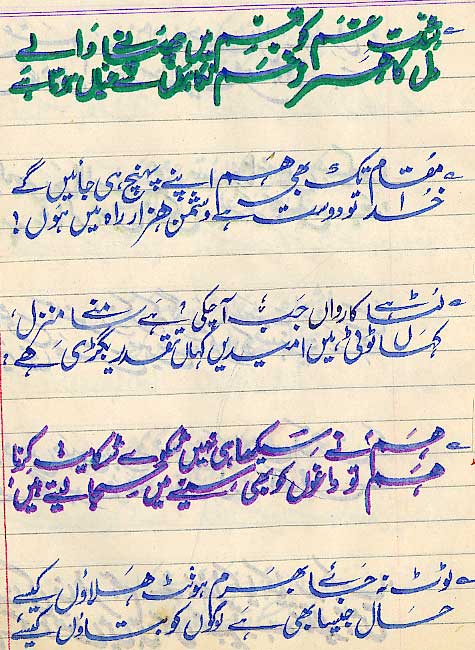 شدت غم کو تبسم میں چھپانے والے
دل کا ہر زخم نگاہوں سے عیاں ہوتا ہے
مقام تک بھی ہم اپنے پہنچ ہی جائیں گے
خدا تو دوست ہے دشمن ہزار راہ میں ہوں!
لٹا ہے کارواں جب آ چکی ہے سامنے منزل
کہاں ٹوٹی ہیں امیدیں کہاں تقدیر بگڑی ہے
ہم نے سیکھا ہی نہیں شکوے شکایت کرنا
ہم تو داغوں کو بھی سینے میں سجا لیتے ہیں
ٹوٹ نہ جائے بھرم ہونٹ ہلاؤں کیسے
حال جیسا بھی ہے لوگوں کو بتاؤں کیسے